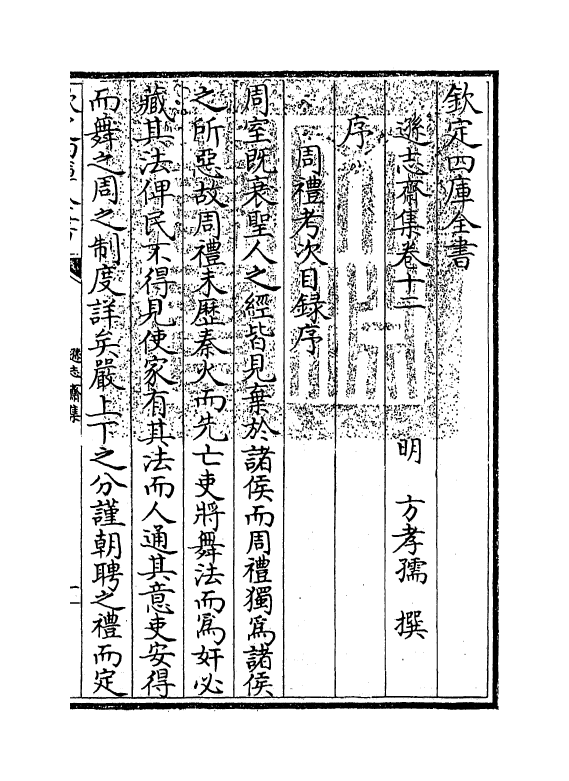 欽定四庫全書
遜志齋集卷十二
明 方孝孺 撰
序
周禮考次目録序
周室既衰聖人之經皆見棄於諸侯而周禮獨為諸侯
之所惡故周禮未歴秦火而先亡吏將舞法而為奸必
藏其法俾民不得見使家有其法而人通其意吏安得
而舞之周之制度詳矣嚴上下之分謹朝聘之禮而定
遜志齋集